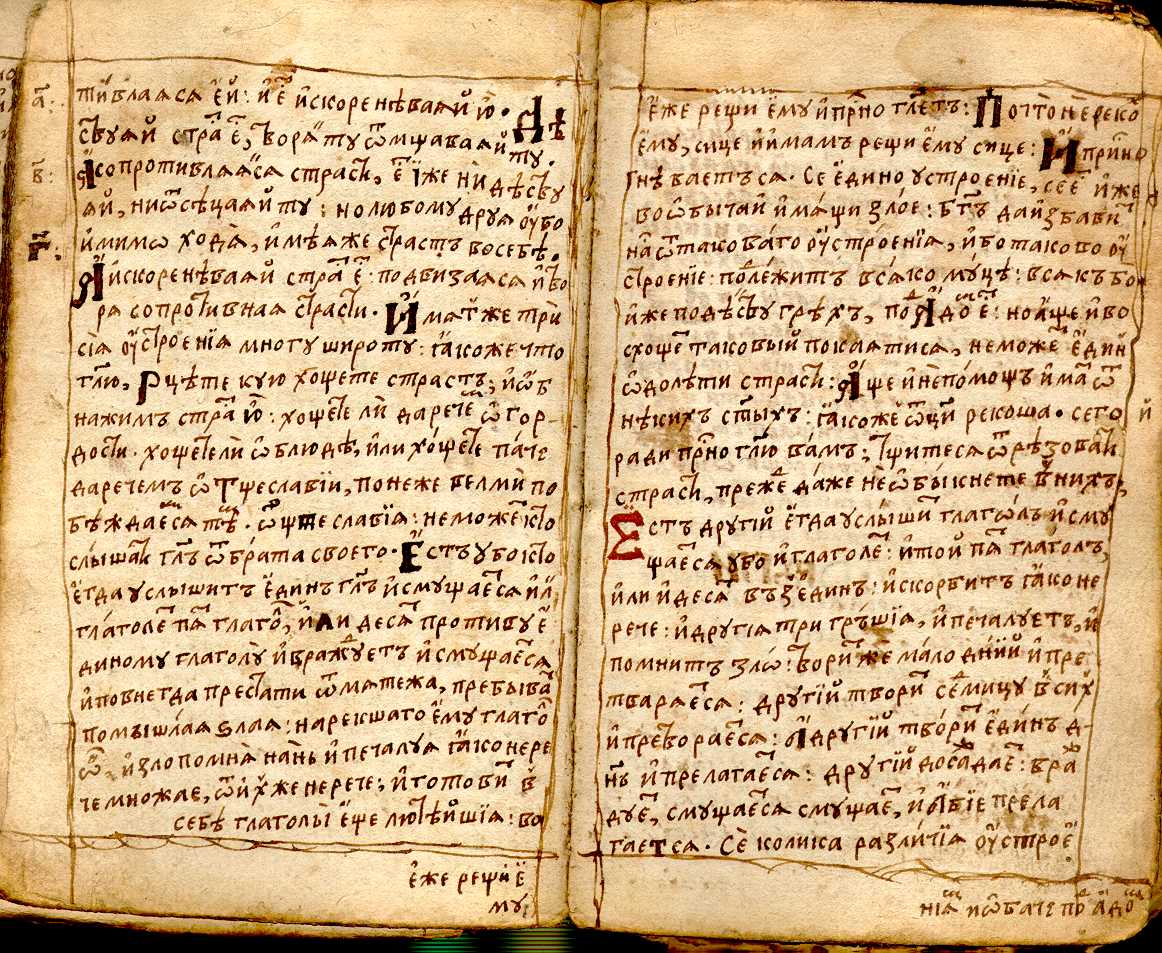 а҃:
тивлѧѧсѧ є҆й: и҆ є҆ и҆скоренѣваѧй ю҆. Дѣ
ствуѧй страⷭ є҆, творѧ ту ѿмщаваѧй ту.
в҃:
Ꙗ҆ сопротивлѧѧсѧ страсти, є҆ и҆же ни дѣству
ѧй, ни ѿсѣцаѧй ту: но любомудруѧ ᲂубо
г҃:
и҆ мимѡ ходѧ, и҆мѣѧ же страсть в себѣ.
Ꙗ҆ и҆скоренѣваѧй страⷭ є҆: подвизаѧсѧ и҆ тво
рѧ сопротивнаѧ страсти. И҆мат же три
сїѧ ᲂустроенїѧ многу широту: ꙗкоже что
глю, Рцѣте кую хощете страсть, и҆ ѡб
нажимъ страⷭ ю҆: хощете ли да речеⷨ ѡ гор-
дости. хощете ли ѡ блюдѣ, и҆ли хощете паче
да речемъ ѡ Тщеславїи, понеже велми по
бѣждаемсѧ тѣⷨ. ѿ тщеславїѧ: не может кто
слышати глъ ѿ брата своего. Єсть убо кто
є҆гда услышитъ є҆динъ глъ и҆ смущаетсѧ и҆ лї
глаголеⷮ пѧⷮ глагоⷧ, и҆ли десѧⷮ противу є҆
диному глаголу и҆ враждуетъ и҆ смущаетсѧ
и҆ повнегда престати ѿ мѧтежа, пребываⷮ
помышлѧѧ ѕлаѧ: на рекшаго є҆му глагоⷧ
ѡⷩ, и҆ злопомнѧ нань и҆ печалуѧ ꙗко не ре
че множае, ѿ ихже не рече; и҆ готовиⷮ в
себѣ глаголы є҆ще лютѣйшїѧ: во
є҆же рещи є҆
му,
є҆же рещи є҆му и҆ прⷭно глетъ: Почто не рекоⷯ
є҆му, сице и҆ имамъ рещи є҆му сице: И҆ прⷭно
гнѣваетьсѧ. Се є҆дино устроенїе, се є҆ и҆же
во ѡбычаи и҆мѧщи злое: бгъ да и҆збавиⷮ
на ѿ таковаго ᲂустроенїѧ, и҆бо таково ᲂу
строенїе: подлежитъ всѧко муцѣ: всѧкъ бо
и҆же подѣству грѣхъ, по Адоⷨ є҆: но аще и҆ во
схощеⷮ таковый покаѧтисѧ, не можеⷮ є҆дин
ѡдолѣти страсти: аще и҆ не помощь и҆маⷨ ѿ
нѣкихъ стыхъ: ꙗкоже ѿци рекоша. сего
ради прⷭно глю вамъ: тщитесѧ ѿрѣзовати
страсти, прежде даже не ѡбыкнете в нихъ,
Єсть другїй є҆гда услышиⷮ глаголъ и҆ сму
щаетсѧ убо и҆ глаголеⷮ: и҆ той пѧⷮ глаголъ,
и҆ли и҆ десѧⷮ въз є҆динъ: и҆ скорбитъ ꙗко не
рече: и҆ другїѧ три грѣшїѧ, и҆ печалуетъ, и҆
помнитъ зло: твориⷮ же мало днїй и҆ пре
тварѧетсѧ: другїй твориⷮ седмицу в сиⷯ
и҆ претворѧетсѧ: А҆ другїй твориⷮ є҆динъ д-
нь и҆ прелагаетсѧ: другїй досаждаеⷮ: враж
дуеⷮ, смущаетсѧ смущаеⷮ, и҆ абїе прела
гаетсѧ. Се колика различїѧ ᲂустрое
нїѧ и҆ ѡбаче поⷣ адоⷨ